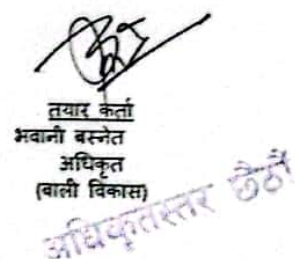 तयार कर्ता
भवानी बस्नेत
अधिकृत
(बाली विकास)
अधिकृतस्तर छैठौं